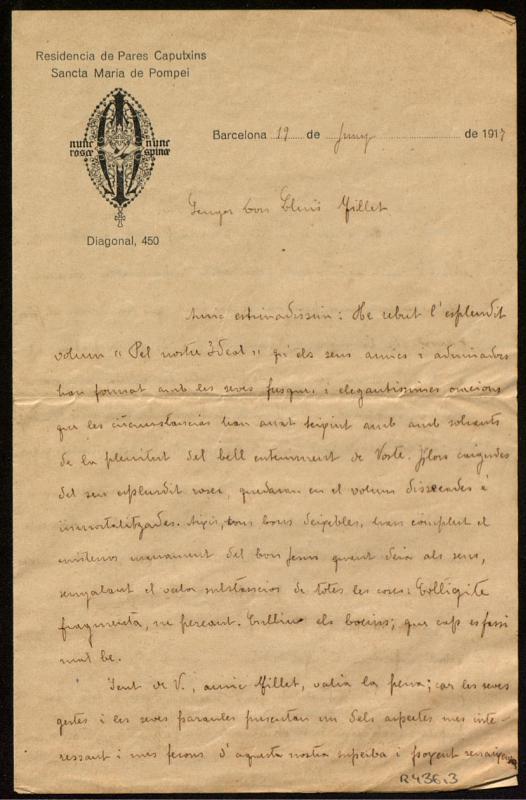 Residencia de Pares Caputxins
Sancta Maria de Pompei
nunc nunc
rosæ spinæ
Diagonal, 450
Barcelona 19 de Juny de 1917
Senyor Don Lluis Millet
Amic estimadissim: He rebut l'esplendit
volum "Pel nostre Ideal" qu'els seus amics i admiradors
han format amb les seves fresques i elegantissimes oracions
que les circunstancias han anat amb amb
de la plenitut del bell enteniment de Vosté. Flors caigudes
del seu esplendit roser, quedaran en el volum dissecades é
immortalitzades. Aixis, bons deixebles, han complert el
misteriós manament del bon Jesus quant deia als seus,
senyalant el valor substancios de totes les coses: Colligite
fragmenta, ne pereant. Culliu els bocins, que cap es fassi
mal be.
Sent de V., amic Millet, valia la pena; car les seves
gestes i les seves paraules presentan un dels aspectes mes inte-
ressant i mes ferons d'aquesta nostra superba i poyent renaixensa
R436.3